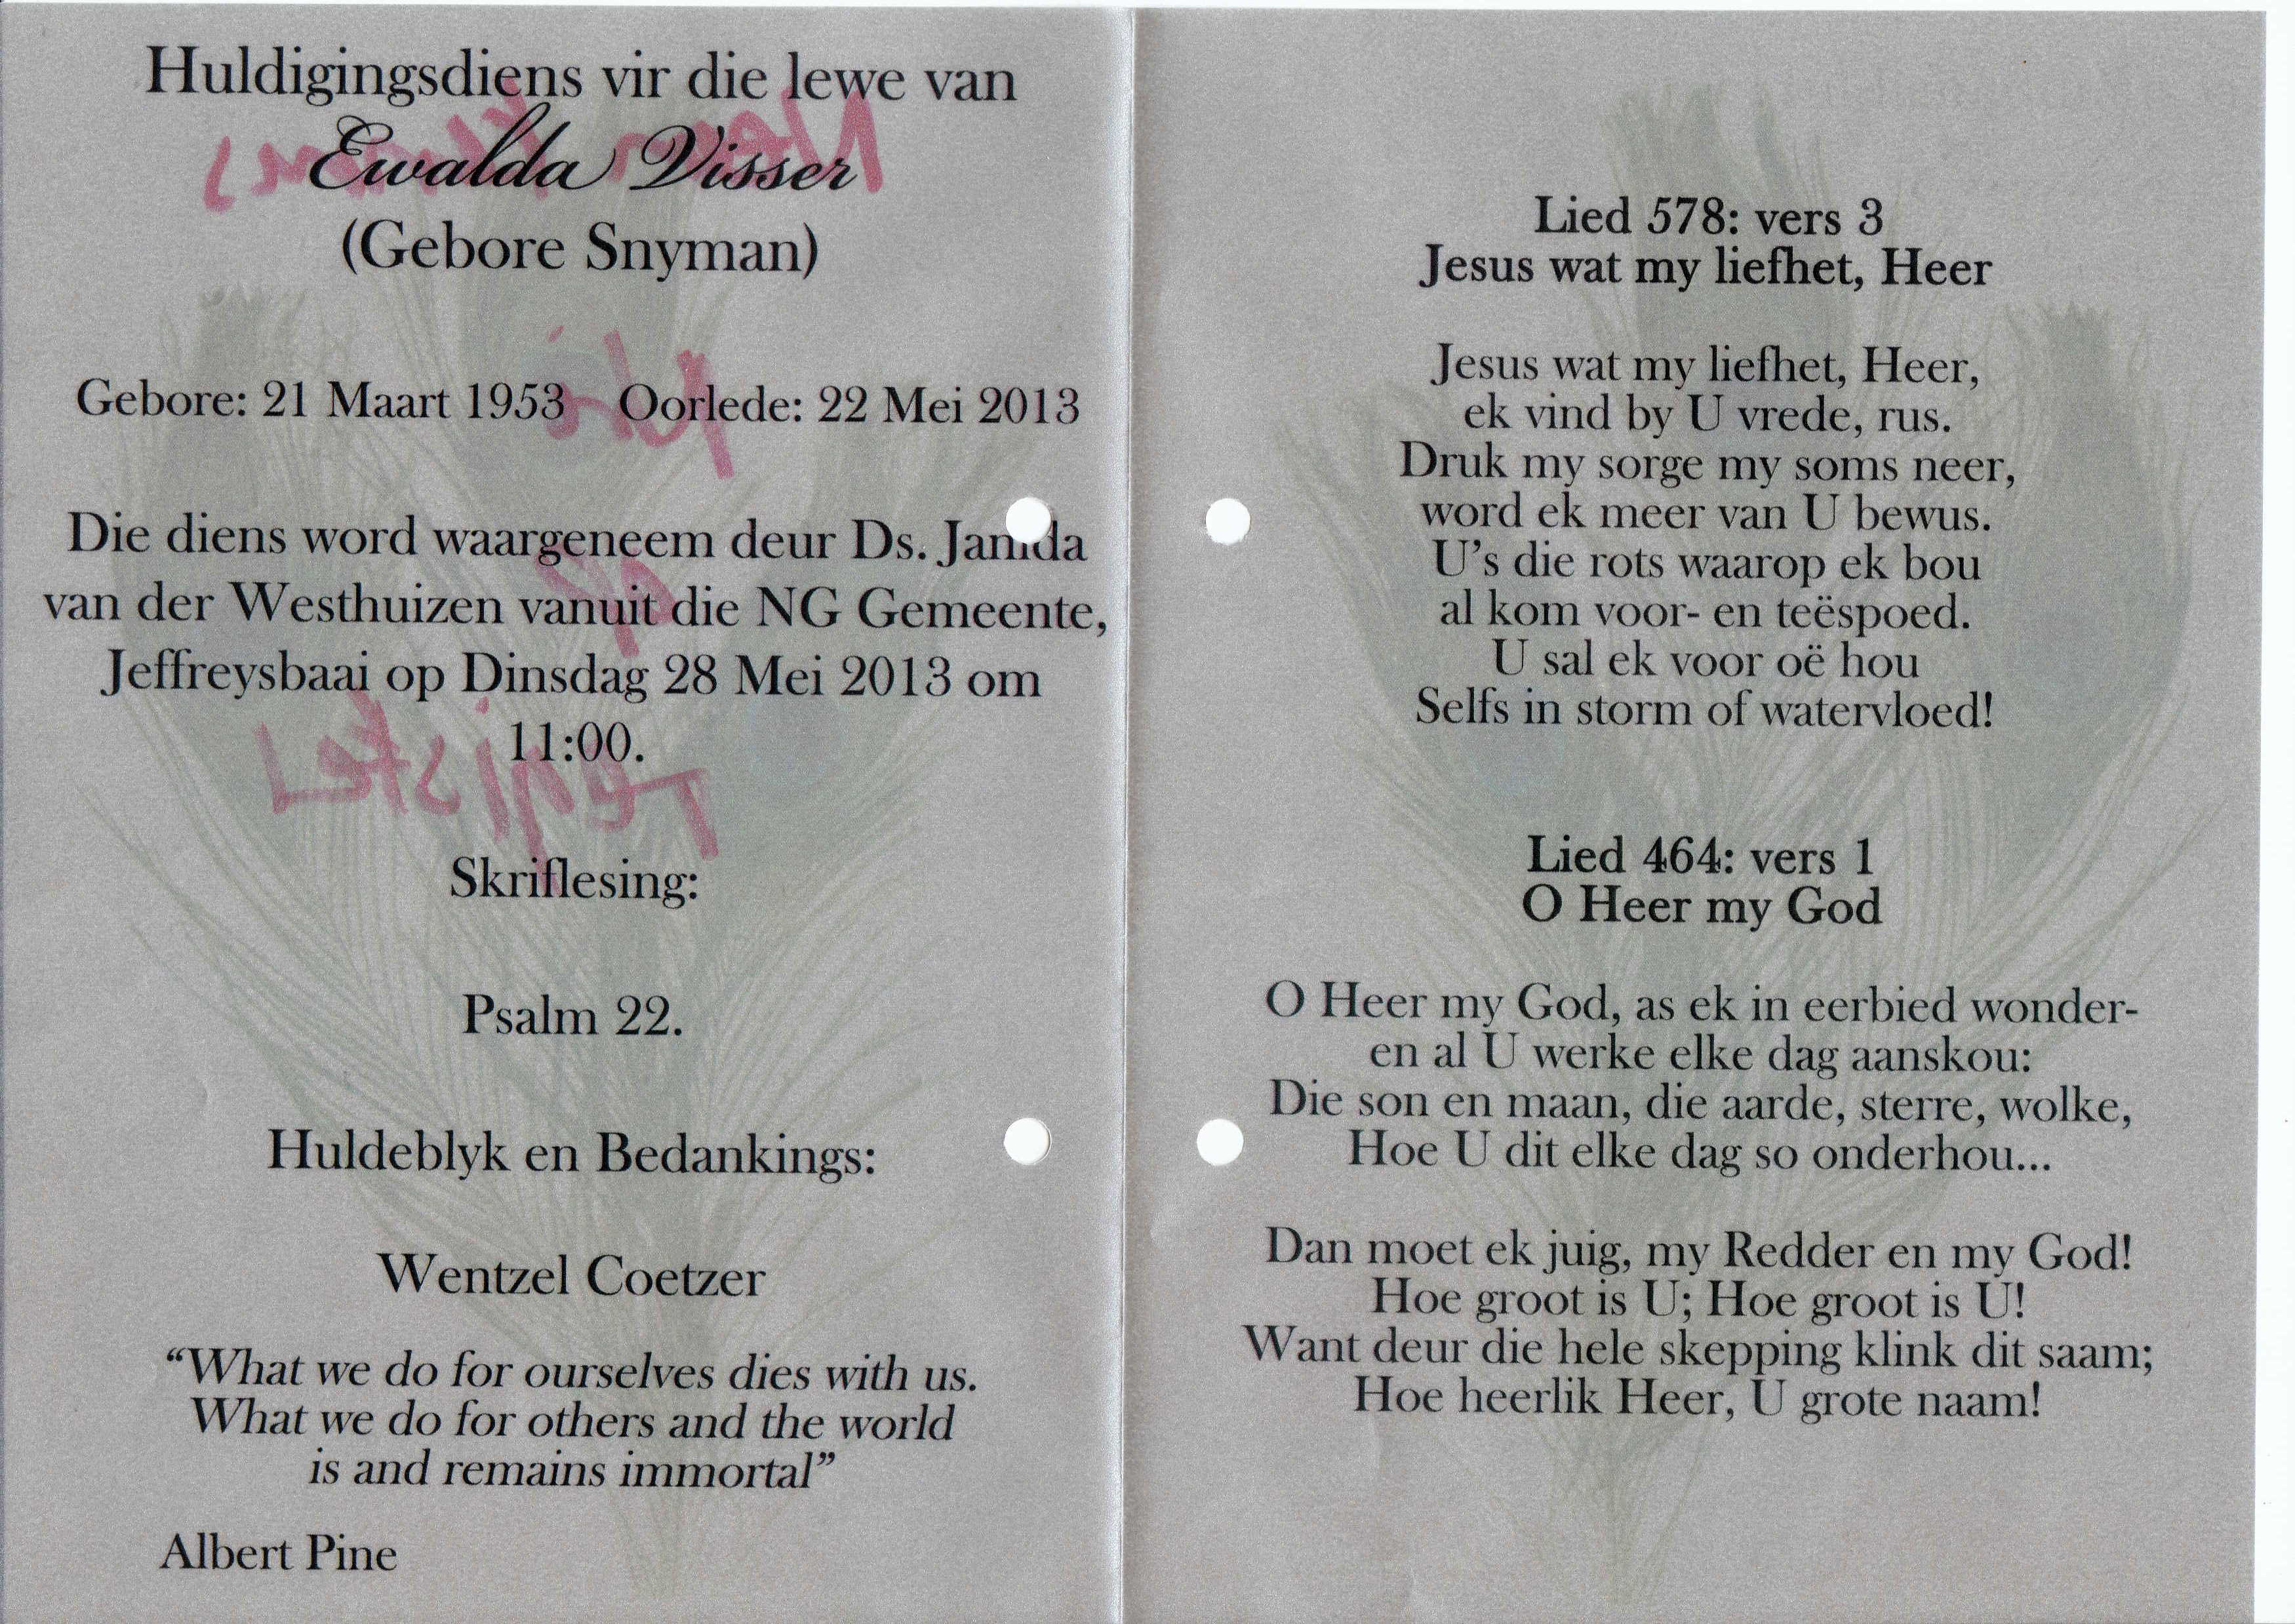 Huldigingsdiens vir die lewe van
Ewalda Visser
(Gebore Snyman)
Gebore: 21 Maart 1953 Oorlede: 22 Mei 2013
Die diens word waargeneem deur Ds.
van der Westhuizen vanuit die NG Gemeente,
Jeffreysbaai op Dinsdag 28 Mei 2013 om
11:00.
Skriflesing:
Psalm 22.
Huldeblyk en Bedankings:
Wentzel Coetzer
“What we do for ourselves dies with us.
What we do for others and the world
is and remains immortal”
Albert Pine
Lied 578: vers 3
Jesus wat my liefhet, Heer
Jesus wat my liefhet, Heer,
ek vind by U vrede, rus.
Druk my sorge my soms neer,
word ek meer van U bewus.
U’s die rots waarop ek bou
al kom voor- en teëspoed.
U sal ek voor oë hou
Selfs in storm of watervloed!
Lied 464: vers 1
O Heer my God
O Heer my God, as ek in eerbied wonder-
en al U werke elke dag aanskou:
Die son en maan, die aarde, sterre, wolke,
Hoe U dit elke dag so onderhou...
Dan moet ek juig, my Redder en my God!
Hoe groot is U; Hoe groot is U!
Want deur die hele skepping klink dit saam;
Hoe heerlik Heer, U grote naam!